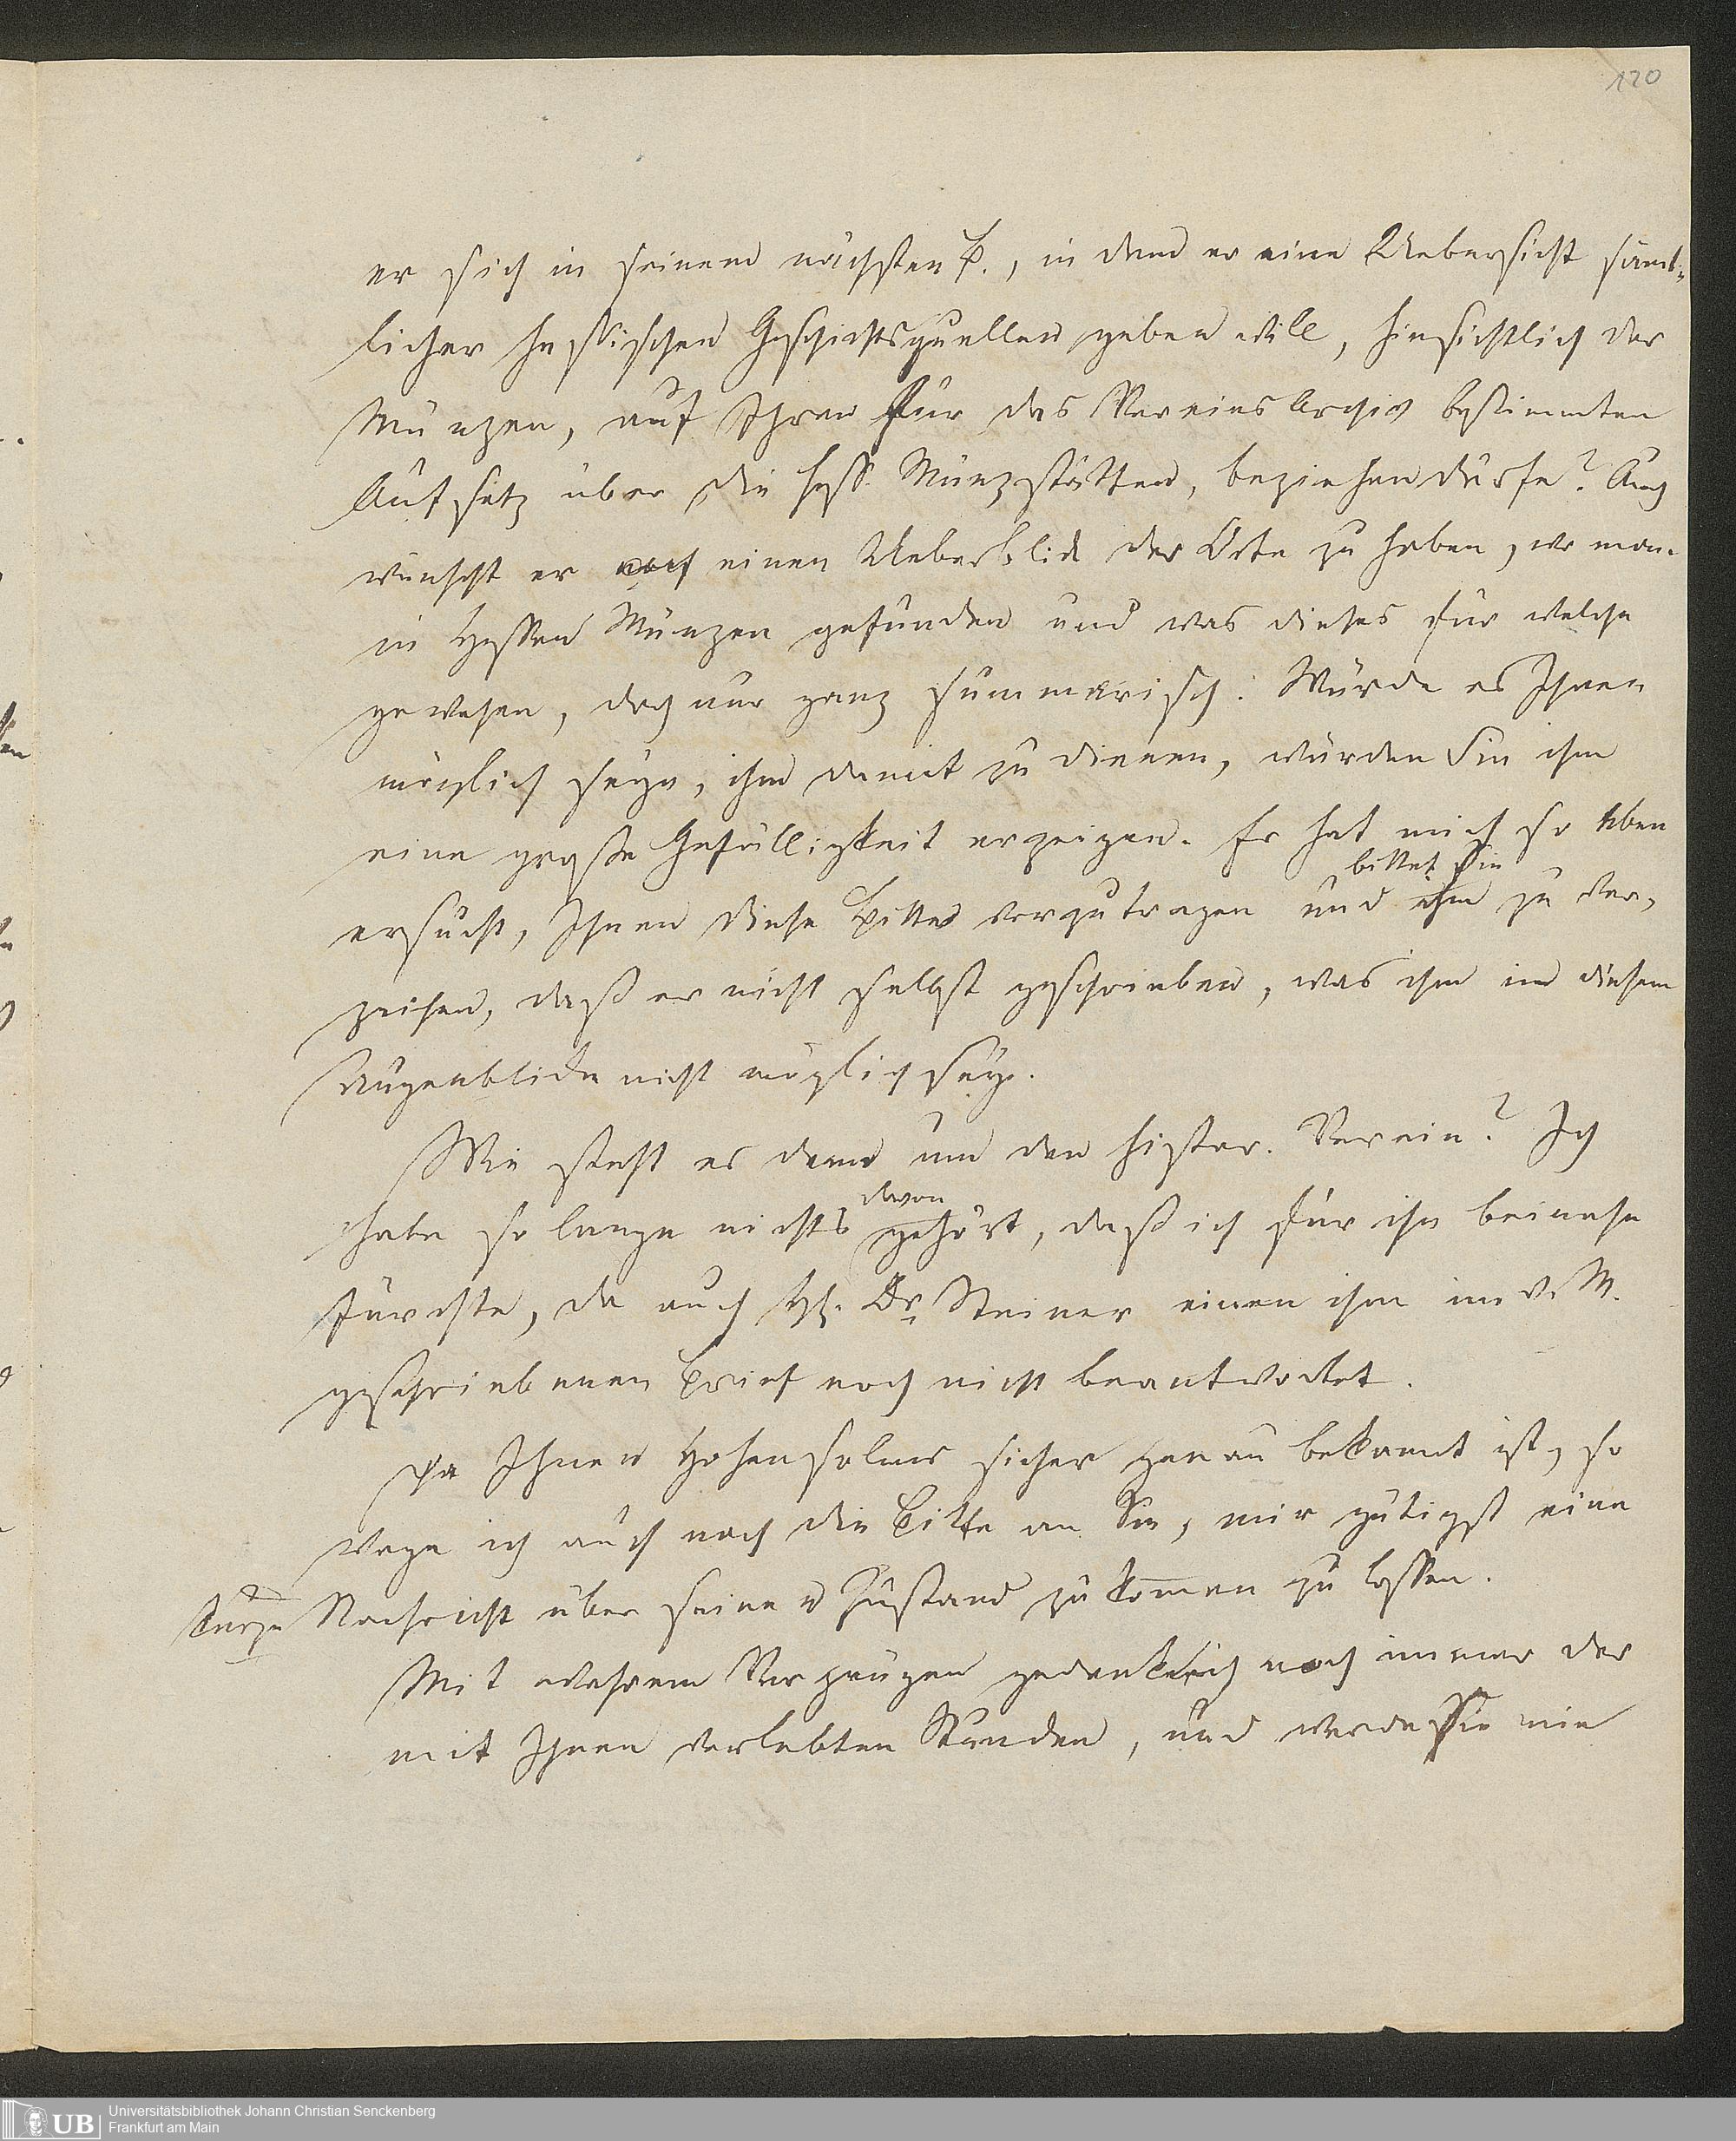 120
er sich in seinem nächsten B., in dem er eine Uebersicht sämt-
licher hessischen Geschichtsquellen geben will, hinsichtlich der
Münzen, auf Ihren für das Vereins Archiv bestimmten
Aufsatz über die hess. Münzstätten, beziehen dürfe? Auch
wünscht er einen Ueberblick der Orte zu haben, wo man
in Hessen Münzen gefunden und was dieses für welche
gewesen, doch nur ganz summarisch. Würde es Ihnen
möglich seyn, ihm damit zu dienen, würden Sie ihm
eine große Gefälligkeit erzeigen. Er hat mich so eben
bittet Sie
ersucht, Ihnen diese Bitte vorzutragen und ihm zu ver-
zeihen, daß er nicht selbst geschrieben, was ihm in diesem
Augenblicke nicht möglich sey.
Wie steht es denn um den histor. Verein? Ich
davon
habe so lange nichts gehört, daß ich für ihn beinahe
fürchte, da auch H. Dr Steiner einen ihm im v. M.
geschriebenen Brief noch nicht beantwortet.
Da Ihnen Hohensolms sicher genau bekannt ist, so
wage ich auch noch die Bitte an Sie, mir gütigst eine
kurze Nachricht über seinen Zustand zukommen zu lassen.
Mit wahrem Vergnügen gedenke ich noch immer der
mit Ihnen verlebten Stunden, und werde sie nie
UB
Universitätsbibliothek Johann Christian Senckenberg
Frankfurt am Main